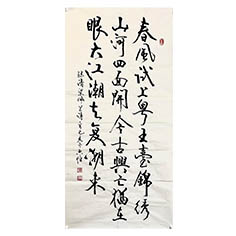 春風試上粵王臺錦绣
山河四面開今古興亡猶在
眼大江潮去復潮來